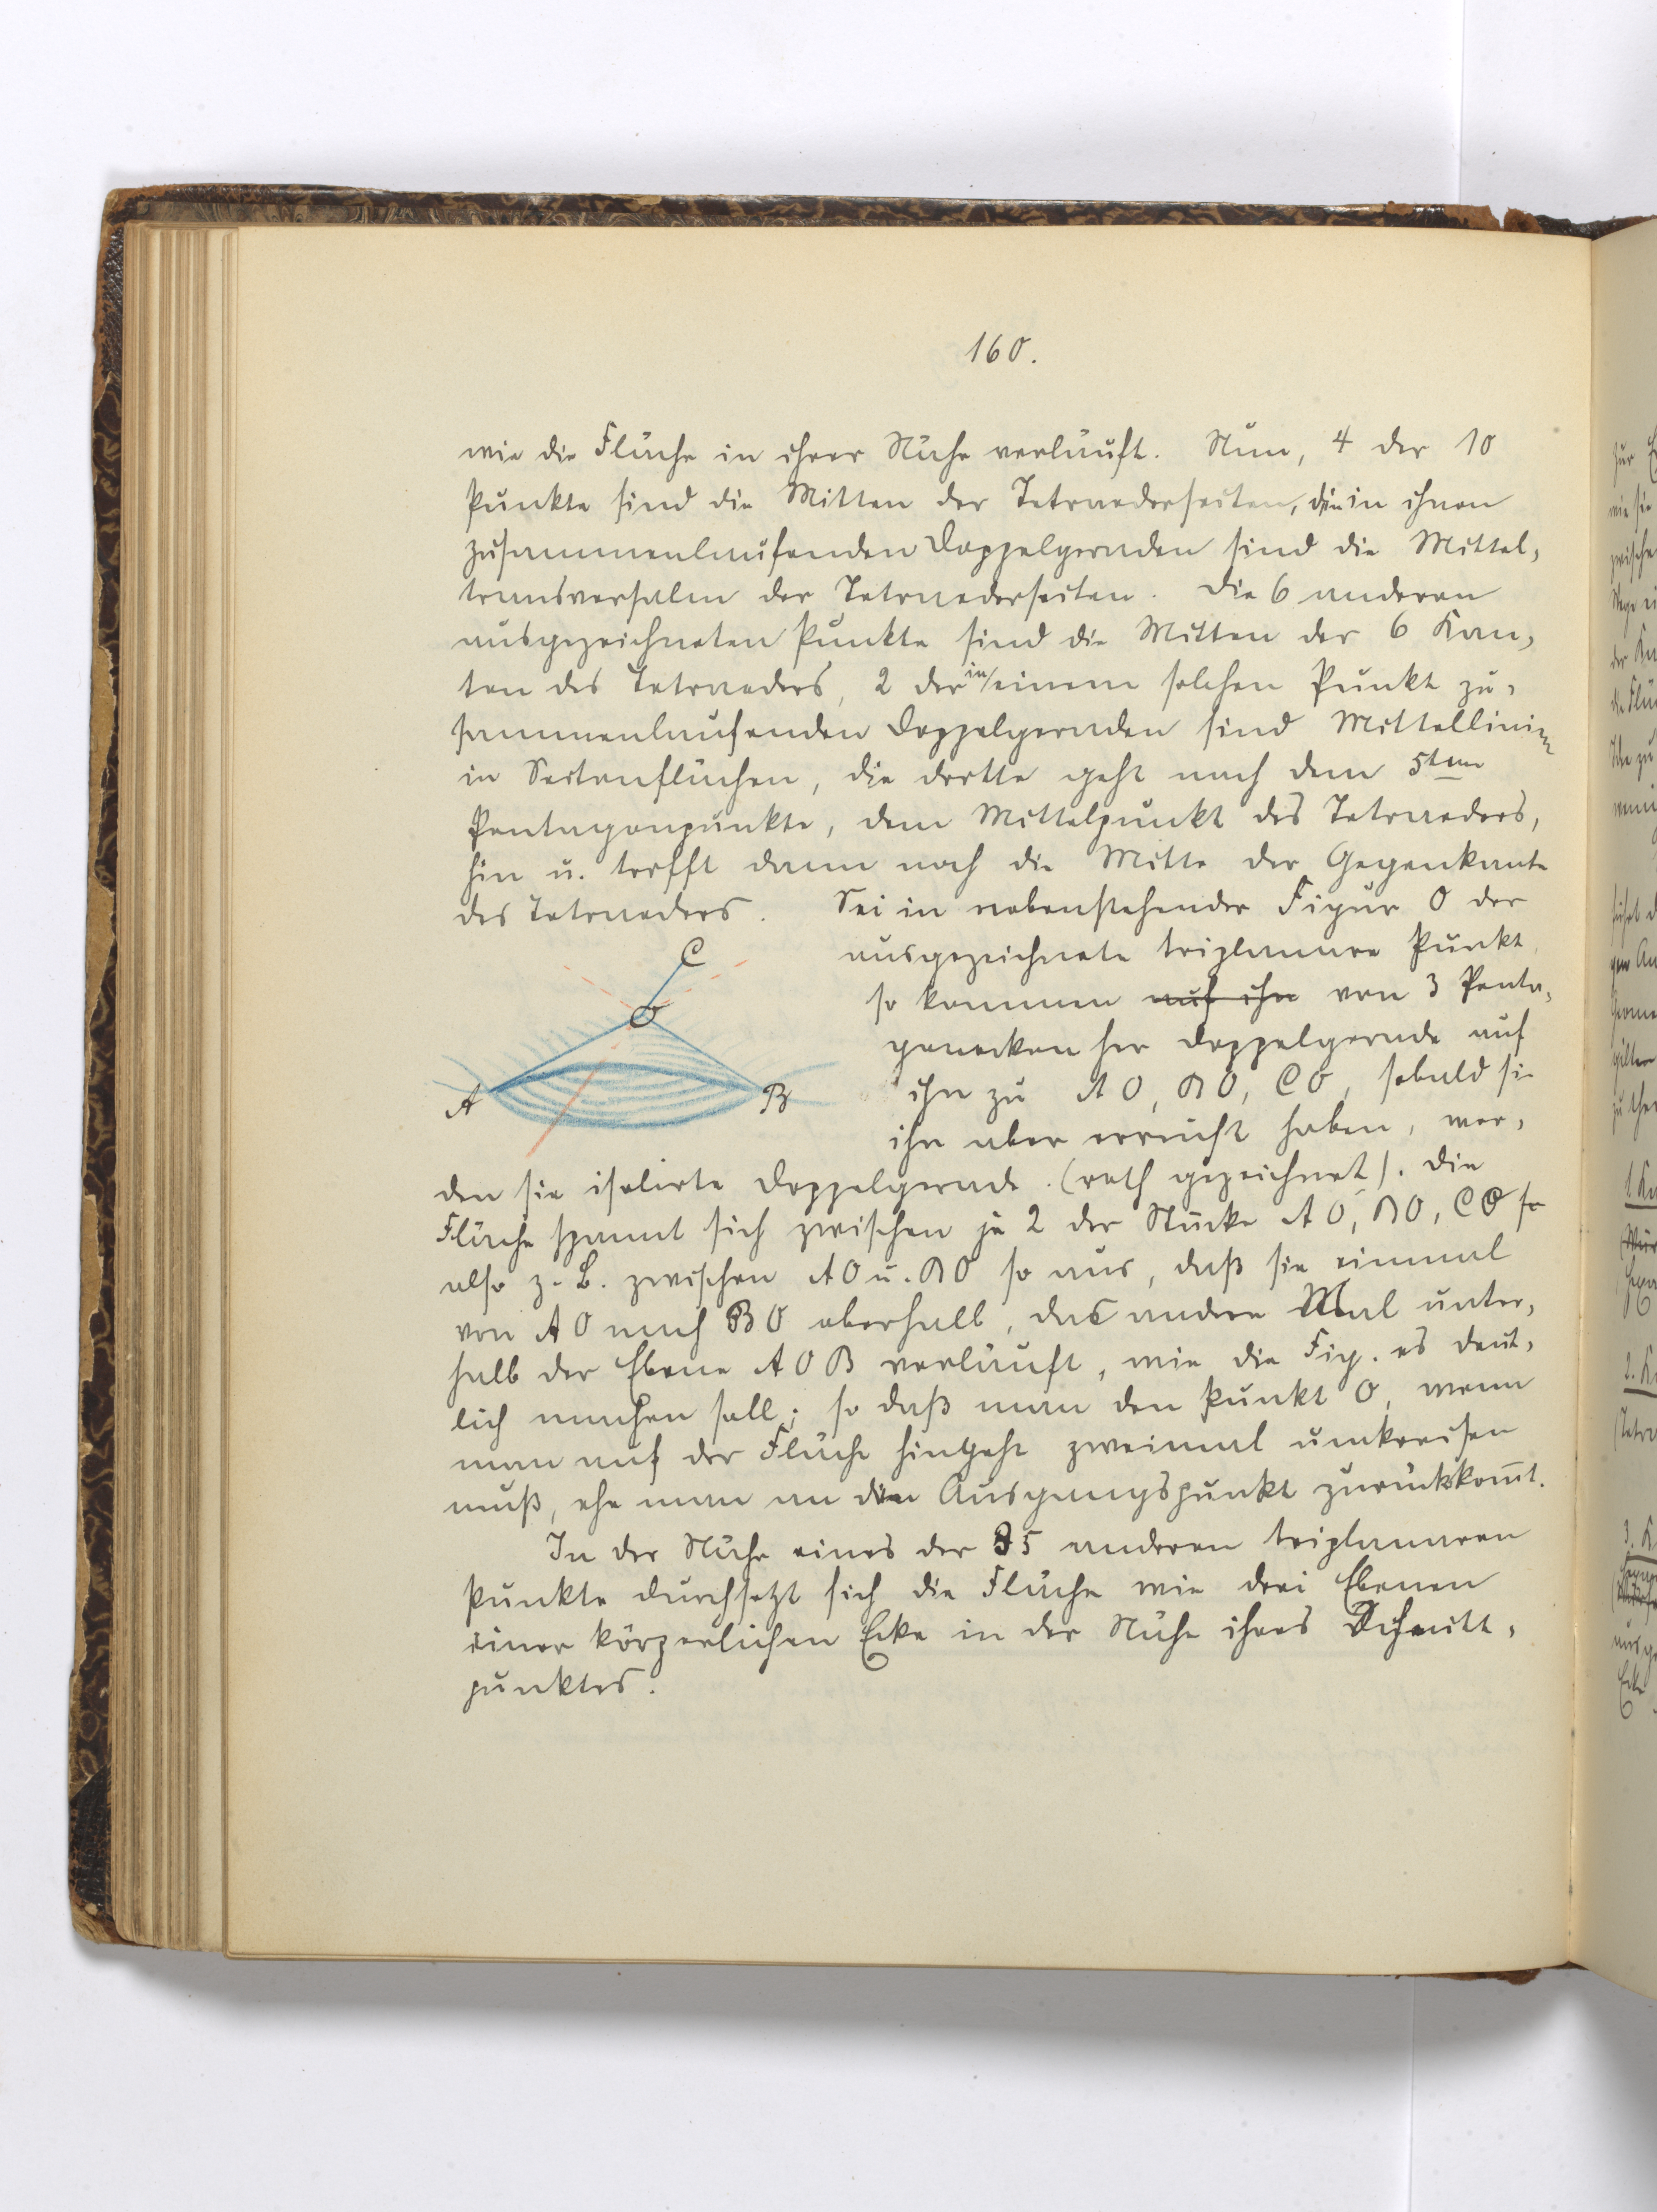 160.
wie die Fläche in ihrer Nähe verläuft. Nun, 4 der 10
Punkte sind die Mitten der Tetraederseiten, die in ihnen
zusammenlaufenden Doppelgeraden sind die Mittel-
transversalen der Tetraederseiten. Die 6 anderen
ausgezeichneten Punkte sind die Mitten der 6 Kan-
ten des Tetraeders, 2 der in einem solchen Punkt zu-
sammenlaufenden Doppelgeraden sind Mittellinien
in Seitenflächen, die dritte geht nach dem 5ten
Pentagonpunkte, dem Mittelpunkt des Tetraeders,
hin u. trifft dann noch die Mitte der Gegenkante
des Tetraeders. Sei in nebenstehender Figur O der
ausgezeichnete triplanare Punkt
so kommen auf ihn von 3 Penta-
gonecken her Doppelgerade auf
ihn zu AO, BO, CO, sobald sie
ihn aber erreicht haben, wer-
den sie isolirte Doppelgerade (roth gezeichnet). Die
Fläche spannt sich zwischen je 2 der Stücke AO, BO, CO so
also z. B. zwischen AO u. BO so aus, daß sie einmal
von AO nach BO oberhalb, das andere Mal unter-
halb der Ebene AOB verläuft, wie die Fig. es deut-
lich machen soll; so daß man den Punkt O, wenn
man auf der Fläche hingeht zweimal umkreisen
muß, ehe man an den Ausgangspunkt zurückkomt.
In der Nähe eines der 35 anderen triplanaren
Punkte durchsetzt sich die Fläche wie drei Ebenen
einer körperlichen Ecke in der Nähe ihres Schnitt-
punktes.
C
O
A
B